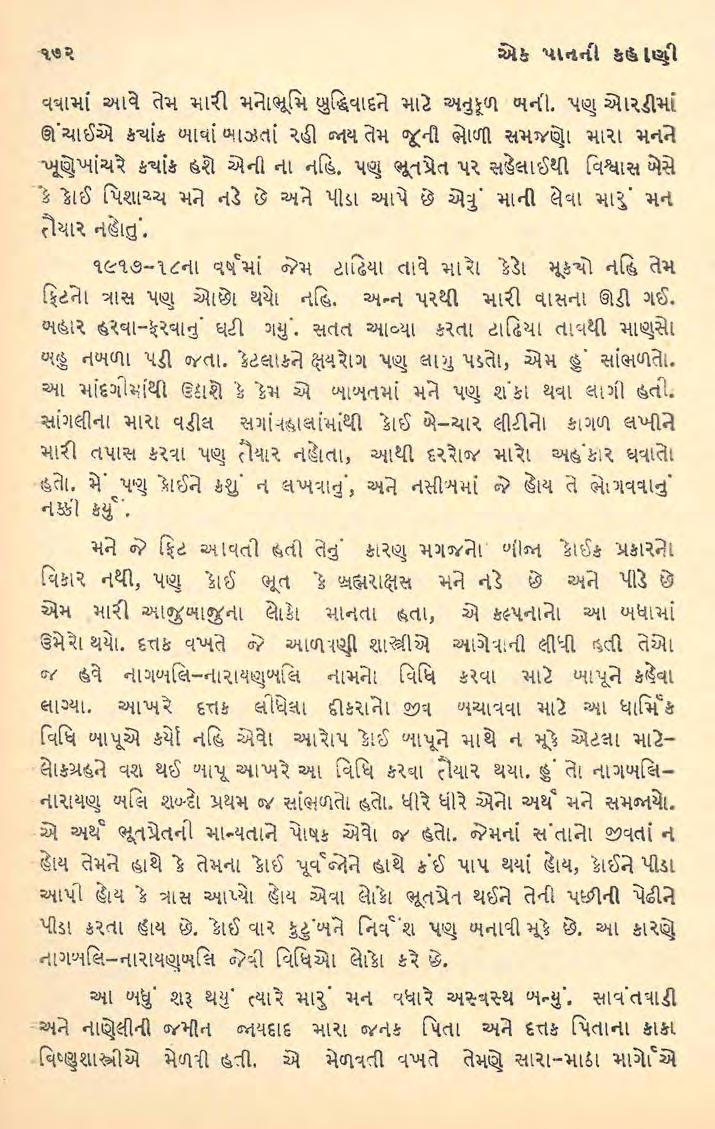 ૧૭૨ એક પાનની કહાણી
વવામાં આવે તેમ મારી મનોભૂમિ બુદ્ધિવાદને માટે અનુકૂળ બની. પણ ઓરડીમાં
ઊંચાઈએ કયાંક બાવાં બાઝતાં રહી જાય તેમ જૂની ભોળી સમજણો મારા મનને
ખૂણેખાંચરે કયાંક હશે એની ના નહિ. પણ ભૂતપ્રેત પર સહેલાઈથી વિશ્વાસ બેસે
કે કોઈ પિશાચ્ચ મને નડે છે અને પીડા આપે છે એવું માની લેવા મારું મન
તૈયાર નહોતું.
૧૯૧૭–૧૮ના વર્ષમાં જેમ ટાઢિયા તાવે મારો કેડો મૂકયો નહિ તેમ
ફિટનો ત્રાસ પણ ઓછો થયો નહિ. અન્ન પરથી મારી વાસના ઊડી ગઈ.
બહાર હરવા–ફરવાનું ઘટી ગયું. સતત આવ્યા કરતા ટાઢિયા તાવથી માણસો
બહુ નબળા પડી જતા. કેટલાકને ક્ષયરોગ પણ લાગુ પડતો, એમ હું સાંભળતો.
આ માંદગીમાંથી ઉઠાશે કે કેમ એ બાબતમાં મને પણ શંકા થવા લાગી હતી.
સાંગલીના મારા વડીલ સગાંવહાલાંમાંથી કોઈ બે–ચાર લીટીનો કાગળ લખીને
મારી તપાસ કરવા પણ તૈયાર નહોતા, આથી દરરોજ મારો અહંકાર ઘવાતો
હતો. મેં પણ કોઈને કશું ન લખવાનું, અને નસીબમાં જે હોય તે ભોગવવાનું
નક્કી કર્યું.
મને જે ફિટ આવતી હતી તેનું કારણ મગજનો બીજા કોઈક પ્રકારનો
વિકાર નથી, પણ કોઈ ભૂત કે બ્રહ્મરાક્ષસ મને નડે છે અને પીડે છે
એમ મારી આજુબાજુના લોકો માનતા હતા, એ કલ્પનાનો આ બધામાં
ઉમેરો થયો. દત્તક વખતે જે આળવણી શાસ્ત્રીએ આગેવાની લીધી હતી તેઓ
જ હવે નાગબલિ–નારાયણબલિ નામનો વિધિ કરવા માટે બાપૂને કહેવા
લાગ્યા. આખરે દત્તક લીધેલા દીકરાનો જીવ બચાવવા માટે આ ધાર્મિક
વિધિ બાપૂએ કર્યો નહિ એવો આરોપ કોઈ બાપૂને માથે ન મૂકે એટલા માટે–
લોકગ્રહને વશ થઈ બાપૂ આખરે આ વિધિ કરવા તૈયાર થયા. હું તો નાગબલિ–
નારાયણ બલિ શબ્દો પ્રથમ જ સાંભળતો હતો. ધીરે ધીરે એનો અર્થ મને સમજાયો.
એ અર્થ ભૂતપ્રેતની માન્યતાને પોષક એવો જ હતો. જેમનાં સંતાનો જીવતાં ન
હોય તેમને હાથે કે તેમના કોઈ પૂર્વજોને હાથે કંઈ પાપ થયાં હોય, કોઈને પીડા
આપી હોય કે ત્રાસ આપ્યો હોય એવા લોકો ભૂતપ્રેત થઈને તેની પછીની પેઢીને
પીડા કરતા હોય છે. કોઈ વાર કુટુંબને નિર્વંશ પણ બનાવી મૂકે છે. આ કારણે
નાગબલિ–નારાયણબલિ જેવી વિધિઓ લોકો કરે છે.
આ બધું શરૂ થયું ત્યારે મારું મન વધારે અસ્વસ્થ બન્યું. સાવંતવાડી
અને નાણેલીની જમીન જાયદાદ મારા જનક પિતા અને દત્તક પિતાના કાકા
વિષ્ણુશાસ્ત્રીએ મેળવી હતી. એ મેળવતી વખતે તેમણે સારા–માઠા માર્ગોએ